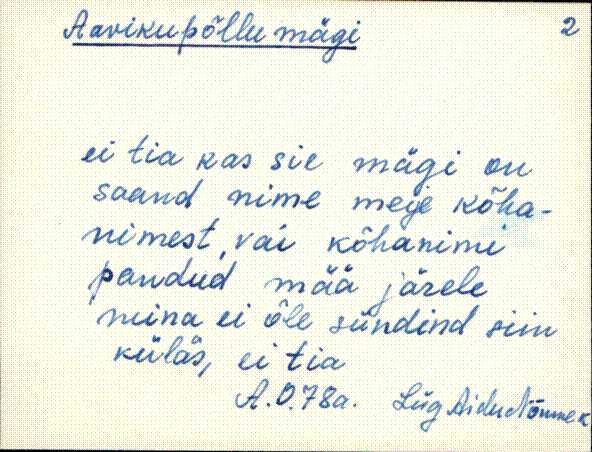 Aavikupõllu mägi 2
ei tia kas sie mägi on
saand nime meije kõha-
nimest, vai kõhanimi
pandud mää järele
mina ei õle sündind siin
küläs, ei tia
A.O. 78a. Lüg Aidu Nõmme k